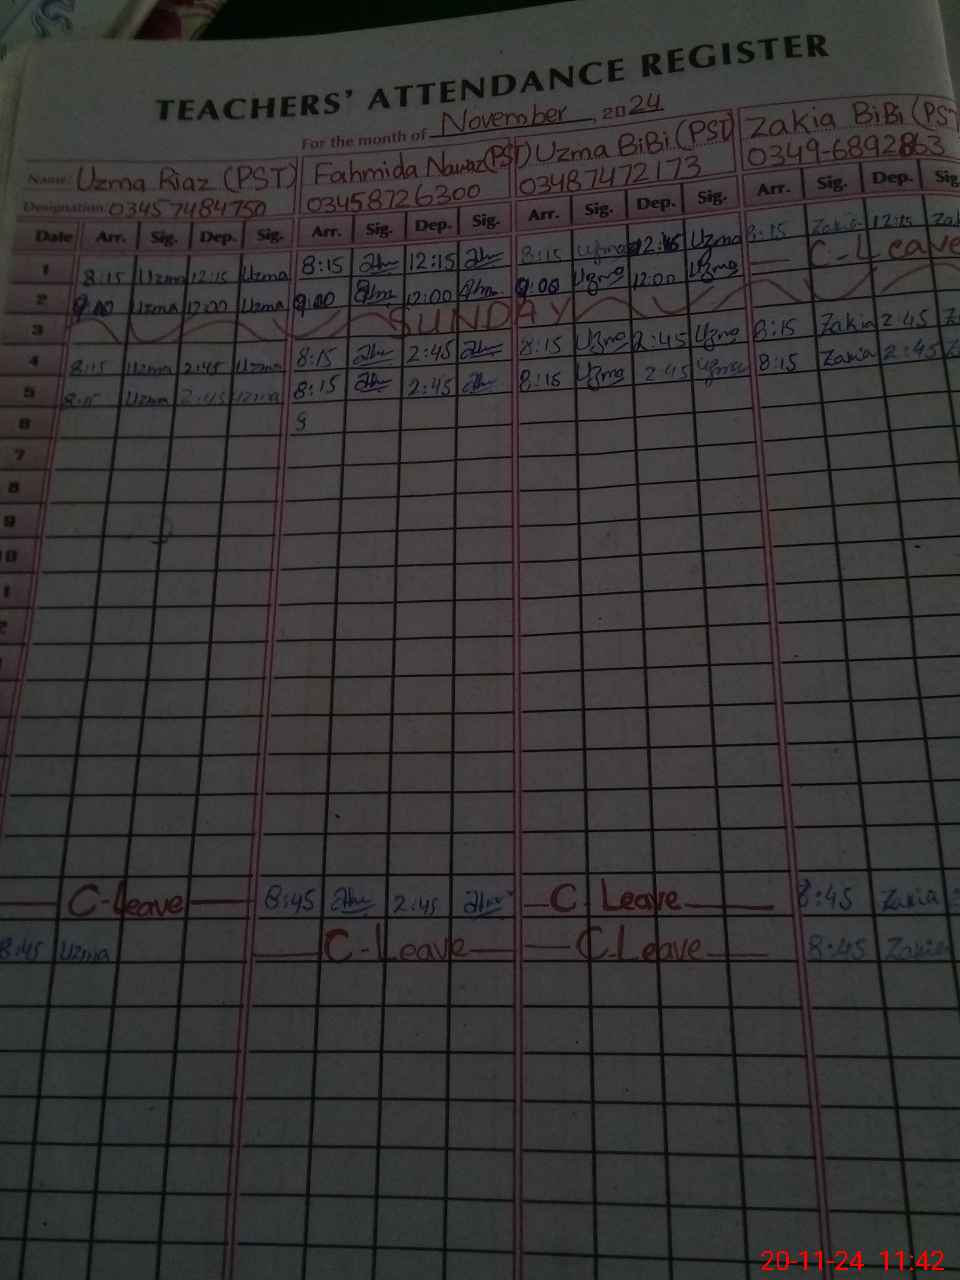 TEACHERS' ATTENDANCE REGISTER
For the month of November, 2024
Name: Uzma Riaz (PST) Fahmida Nawaz (PST) Uzma BiBi (PST) Zakia BiBi (PS
Designation: 03457484750 03458726300 03487472173 0349-6892863
Date Arr. Sig. Dep. Sig. Arr. Sig. Dep. Sig. Arr. Sig. Dep. Sig. Arr. Sig. Dep. Sig
1 8:15 Uzma 12:15 Uzma 8:15 12:15 8:15 Uzma 12:15 Uzma 8:15 Zakia 12:15 Za
2 9:00 Uzma 12:00 Uzma 9:00 12:00 9:00 Uzma 12:00 Uzma C-Leave
3 SUNDAY
4 8:15 Uzma 2:45 Uzma 8:15 2:45 8:15 Uzma 2:45 Uzma 8:15 Zakia 2:45 Z
5 8:15 Uzma 2:45 Uzma 8:15 2:45 8:15 Uzma 2:45 Uzma 8:15 Zakia 2:45 Z
6
7
8
9
10
1
2
C-Leave 8:45 2:45 C Leave 8:45 Zakia
8:45 Uzma C-Leave C Leave 8:45 Zakia
20-11-24 11:42